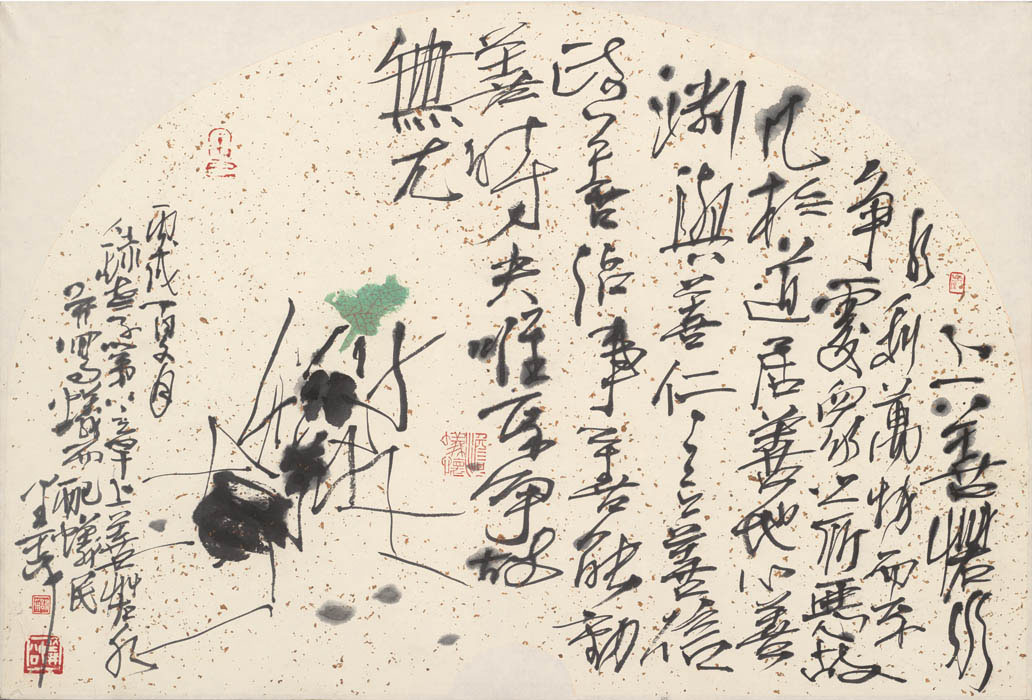 上善若水
水利萬物而不
爭處眾人之所惡故
几於道居善地心善
淵與善仁言善信
政善治事善能動
善時夫唯不爭故
無尤
丙戌夏月
錄老子第八章上善若水
并寫